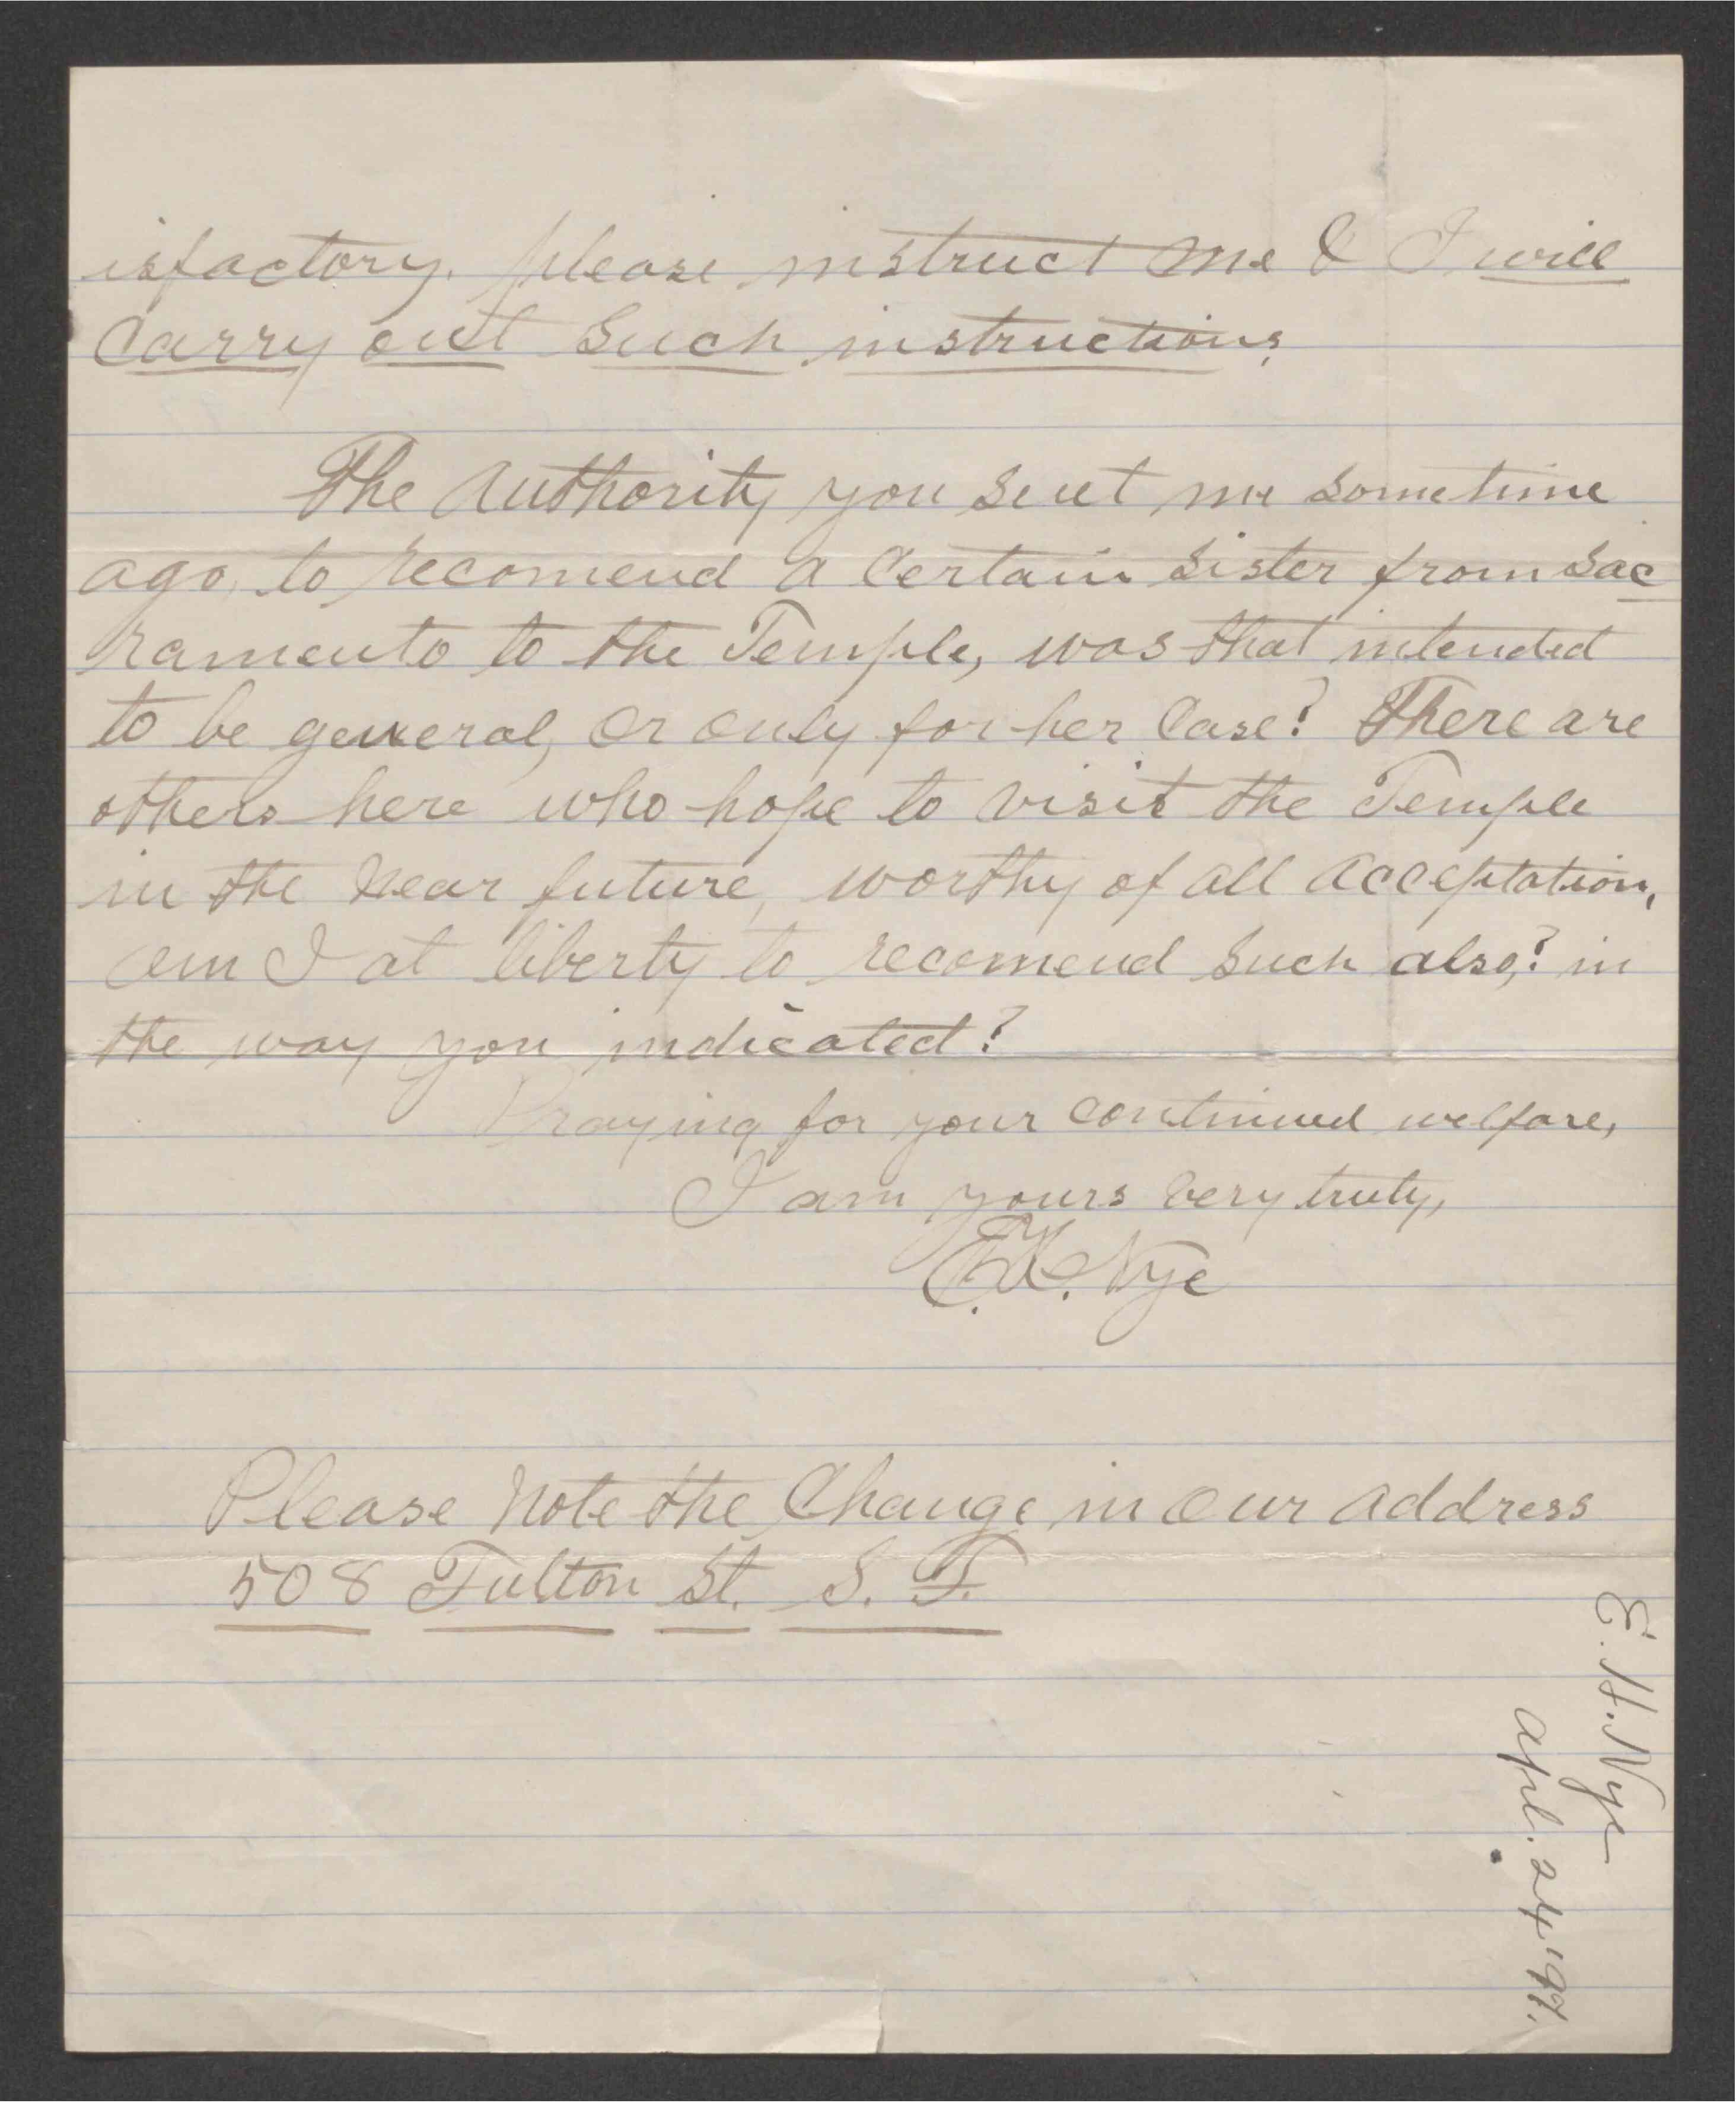 isfactory. please instruct me & I will
carry out such instructions
The Authority you sent me sometime
ago, to recomend a certain Sister from Sac
ramento to the Temple, was that intended
to be general, or only for her case? There are
others here who hope to visit the Temple
in the near future, worthy of all acceptation,
am I at liberty to recomend such also,? in
the way you indicated?
Praying for your continued welfare,
I am yours very truly,
E.H. Nye
Please Note the Change in our address
508 Fulton St. S. F.
E. H. Nye
Apl. 24 '97.